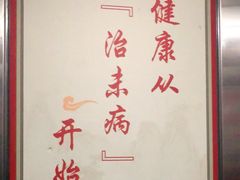 健康从
『治未病』
开始